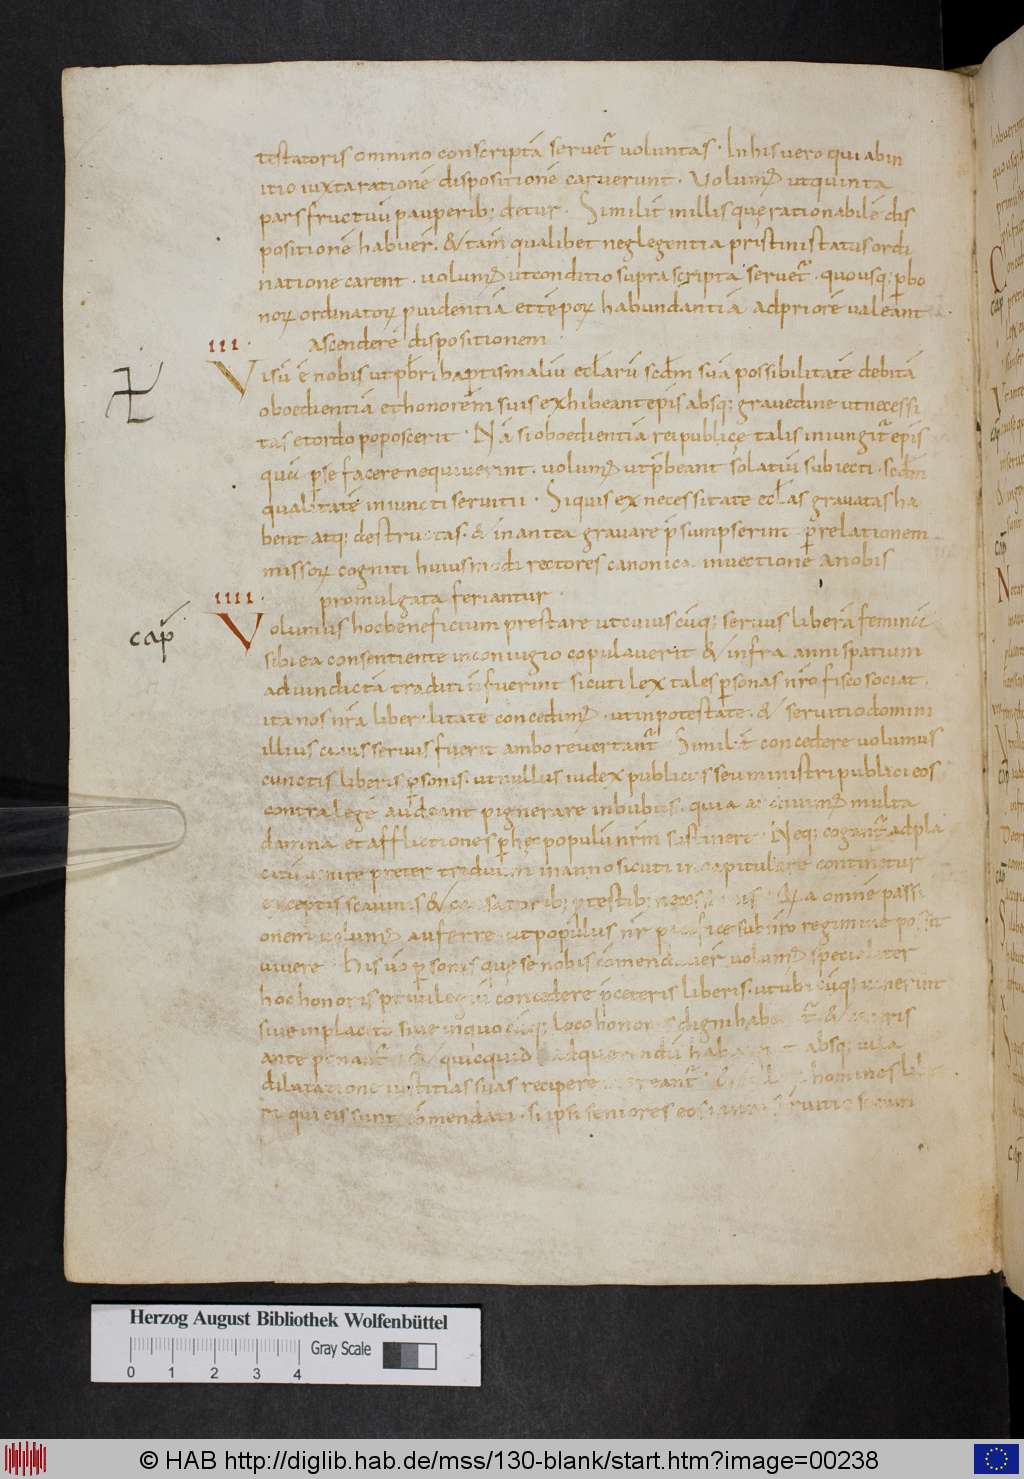 testatoris omnino conscriptā servet᷑ voluntas · In his vero qui ab in
itio iuxta rationē dispositionē caruerunt · Volum᷒ ut quinta
pars fructuū pauperib; detur · Similit̄ in illis quę rationabilē dis
positionē habuer̄ · & tam̄ qualibet neglegentia pristini status ordi
natione carent · volum᷒ ut conditio supra scripta servet᷑ · quousq; ꝑ bo
noꝝ ordinatoꝝ ꝓvidentiā et tēpoꝝ habundantiā ad priorē valeant
III · ascendere dispositionem ·
Visū ē nobis ut pb̄ri baptismaliū eccl̄arū scd̄m suā possibilitatē debitā
oboedientiā et honorem suis exhibeant ep̄is absq; gravedine ut necessi
tas et ordo poposcerit · Nā si oboedientia reipublicę talis iniungit᷑ ep̄is
quā ꝑ se facere nequiverint · volum᷒ ut p̄beant solatiū subiecti · scd̄m
qualitatē iniuncti servitii · Siquis ex necessitate eccl̄as gravatas ha
bent atq; destructas · & in antea gravare p̄sumpserint ꝑ relationem
missoꝝ cogniti huiusmodi rectores canonica invectione a nobis
IIII · promulgata feriantur ·
cap̄
Volumus hoc beneficium prestare ut cuiuscūq; servus liberā feminā
sibi ea consentiente in coniugio copulaverit & infra anni spatium
ad vindictā traditi n̄ fuerint sicuti lex tales ꝑsonas nr̄o fisco sociat ·
ita nos nr̄a liberalitate concedim᷒ · ut in potestate · & servitio domini
illius cuius servus fuerit ambo revertant᷑ · Similit̄ concedere volumus
cunctis liberis ꝑsonis · ut nullus iudex publicus seu ministri publici eos
contra legē audeant pignerare in bubus · quia cuim᷒ multa
damna et afflictiones ꝑ hęc populū nr̄m sustinere · Neq; cogant᷑ ad pla
citū venire preter in anno sicuti in capitulare continetur
exceptis scavinis & causatorib; & testib; necessariis · omnē passi
onem volum᷒ auferre · ut populus nr̄ pacifice sub nr̄o regimine possit
vivere · His v̄o ꝑsonis que se nobis cōmendaver̄ volum᷒ specialiter
hoc honoris privilegiū concedere p̄ ceteris liberis · ut ubicūq; venerint
sive in placito sive in quocūq; loco honore digni habeant᷑ & ceteris
ante ponant᷑ & quicquid ad querendū habuerint absq; ulla
dilatatione iustitias suas recipere mereant᷑ · homines libe
ri qui eis sunt cōmendati · si ipsi seniores eos servitio
Herzog August Bibliothek Wolfenbüttel
Gray Scale
0 1 2 3 4
© HAB http://diglib.hab.de/mss/130-blank/start.htm?image=00238